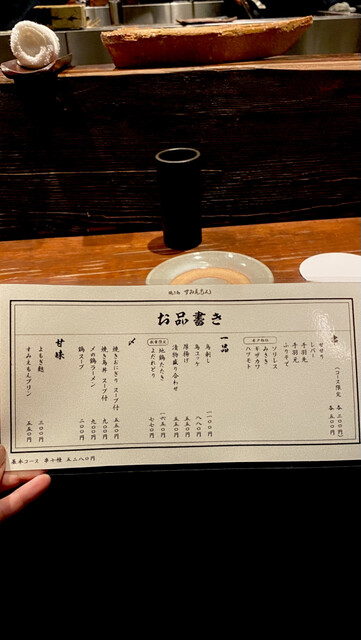 焼き鳥 すみえもん
お品書き
串 (コース限定 各三三〇円
各五五〇円
ぼんじり
レバー
手羽元
手羽先
ふりそで
希少部位
ソリレス
みさき
ギザカワ
ハツモト
一品
鳥刺し 一一〇〇円
鳥ユッケ 八八〇円
厚揚げ 五五〇円
漬物盛り合わせ 五五〇円
数量限定
地鶏たたき 一六五〇円
よだれどり 七七〇円
〆
焼きおにぎり スープ付 五五〇円
焼き鳥丼 スープ付 九〇〇円
〆の鶏ラーメン 九〇〇円
鶏スープ 二〇〇円
甘味
よもぎ麩 三〇〇円
すみえもんプリン 五五〇円
基本コース 串十種 五二八〇円